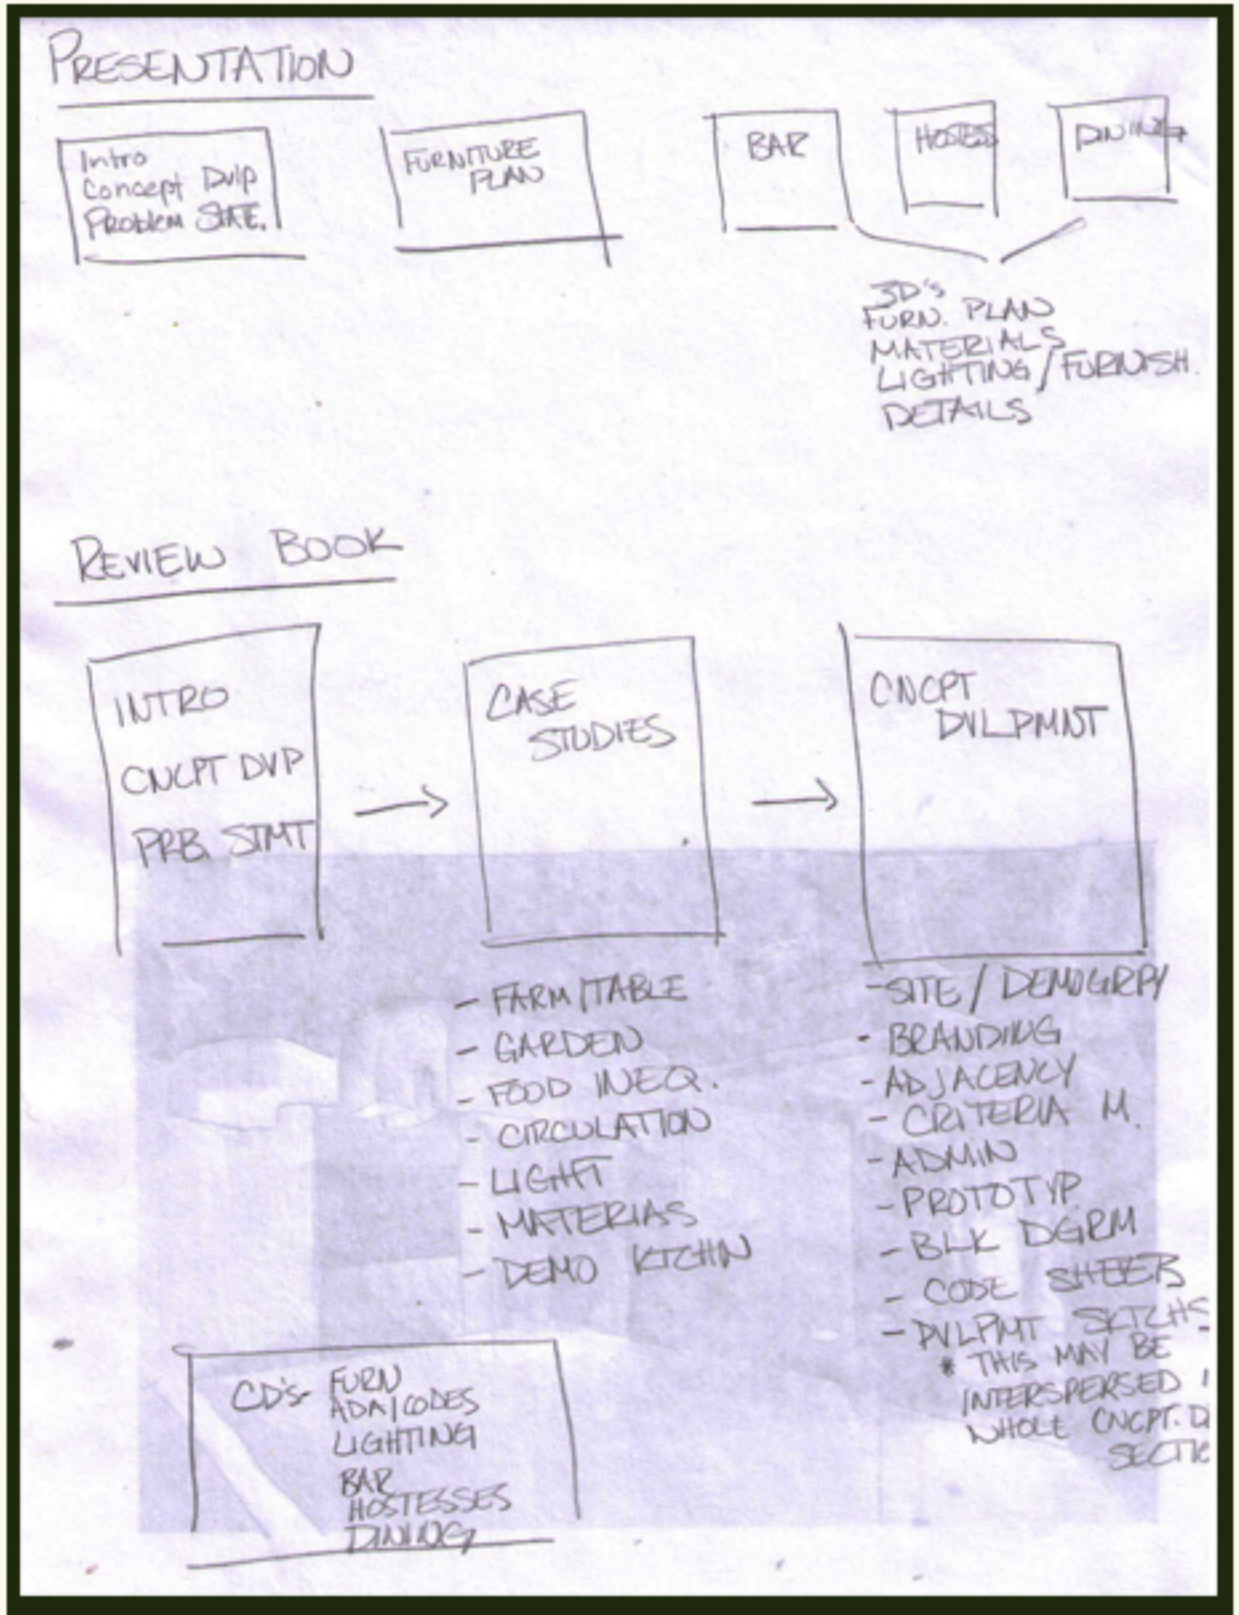 PRESENTATION
Intro
Concept Dvlp
PROBLEM STATE.
FURNITURE
PLAN
BAR
HOSTES
DINING
3D's
FURN. PLAN
MATERIALS
LIGHTING / FURNISH.
DETAILS
REVIEW BOOK
INTRO
CNCPT DVP
PRB. STMT
CASE
STUDIES
CNCPT
DVLPMNT
- FARM/TABLE
- GARDEN
- FOOD INEQ.
- CIRCULATION
- LIGHT
- MATERIAS
- DEMO KTCHN
- SITE / DEMOGRPY
- BRANDING
- ADJACENCY
- CRITERIA M.
- ADMIN
- PROTOTYP.
- BLK DGRM
- CODE SHEETS
- DVLPMT SKTCHS
* THIS MAY BE
INTERSPERSED
WHOLE CNCPT. D
SECTIO
CD's- FURN
ADA/CODES
LIGHTING
BAR
HOSTESSES
DINING